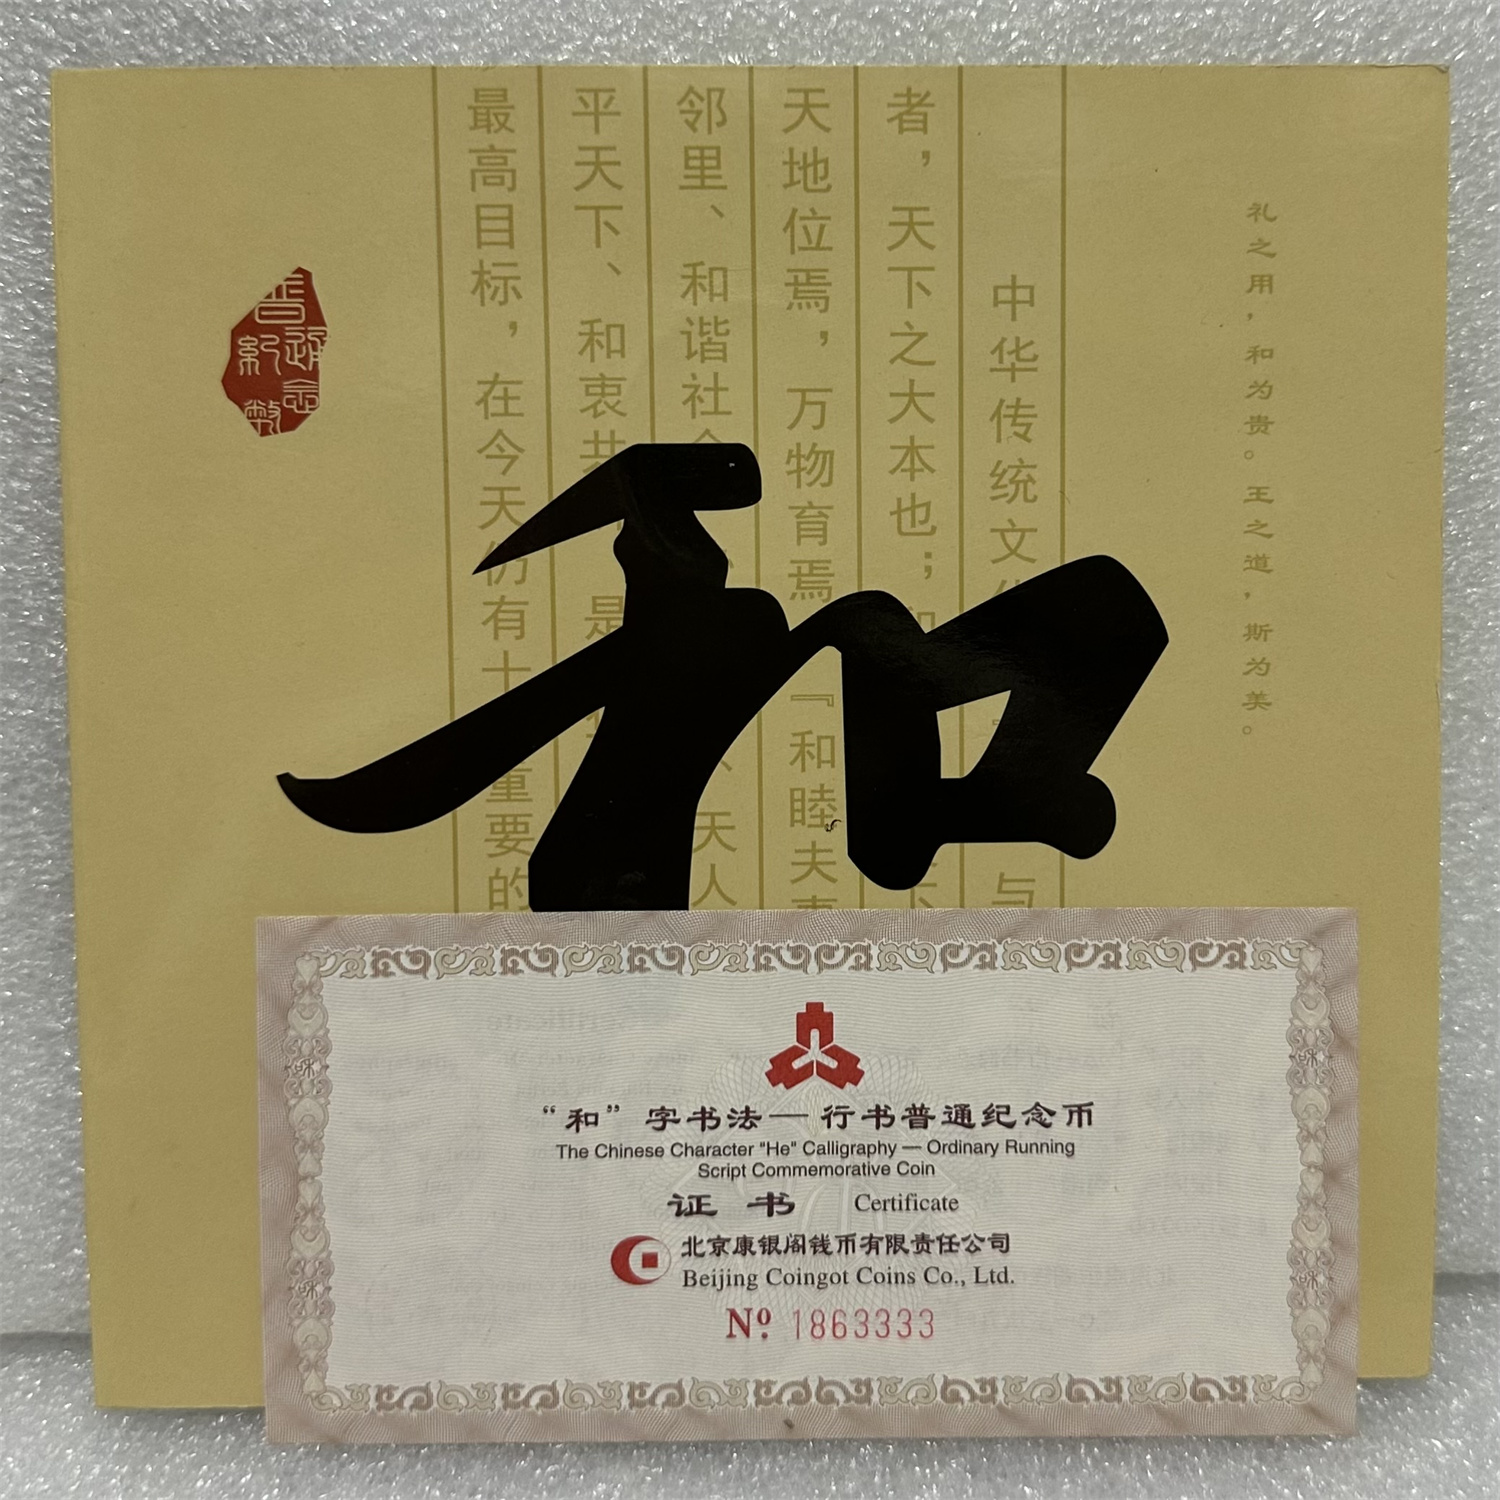 礼之用，和为贵。王之道，斯为美。
中华传统文 与
者，天下之大本也；
天地位焉，万物育焉 『和睦夫妻
邻里、和谐社会 、天人
平天下、和衷共 是
最高目标，在今天仍有十 重要的
普通紀念幣
和
“和”字书法—行书普通纪念币
The Chinese Character "He" Calligraphy — Ordinary Running
Script Commemorative Coin
证 书 Certificate
北京康银阁钱币有限责任公司
Beijing Coingot Coins Co., Ltd.
Nº. 1863333